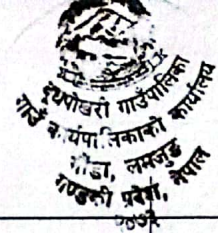 दूधपोखरी गाउँपालिका
गाउँ कार्यपालिकाको कार्यालय
लमजुङ
गण्डकी प्रदेश, नेपाल
२०७३